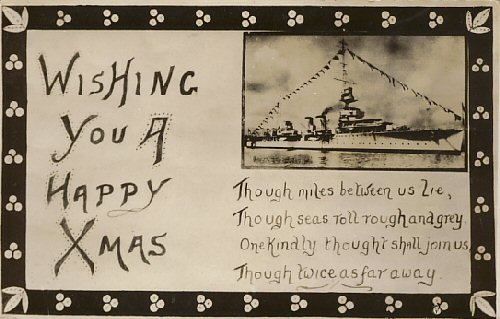 WISHING
YOU A
HAPPY
XMAS
Though miles between us lie,
Though seas roll rough and grey.
One Kindly thought shall join us,
Though twice as far away.